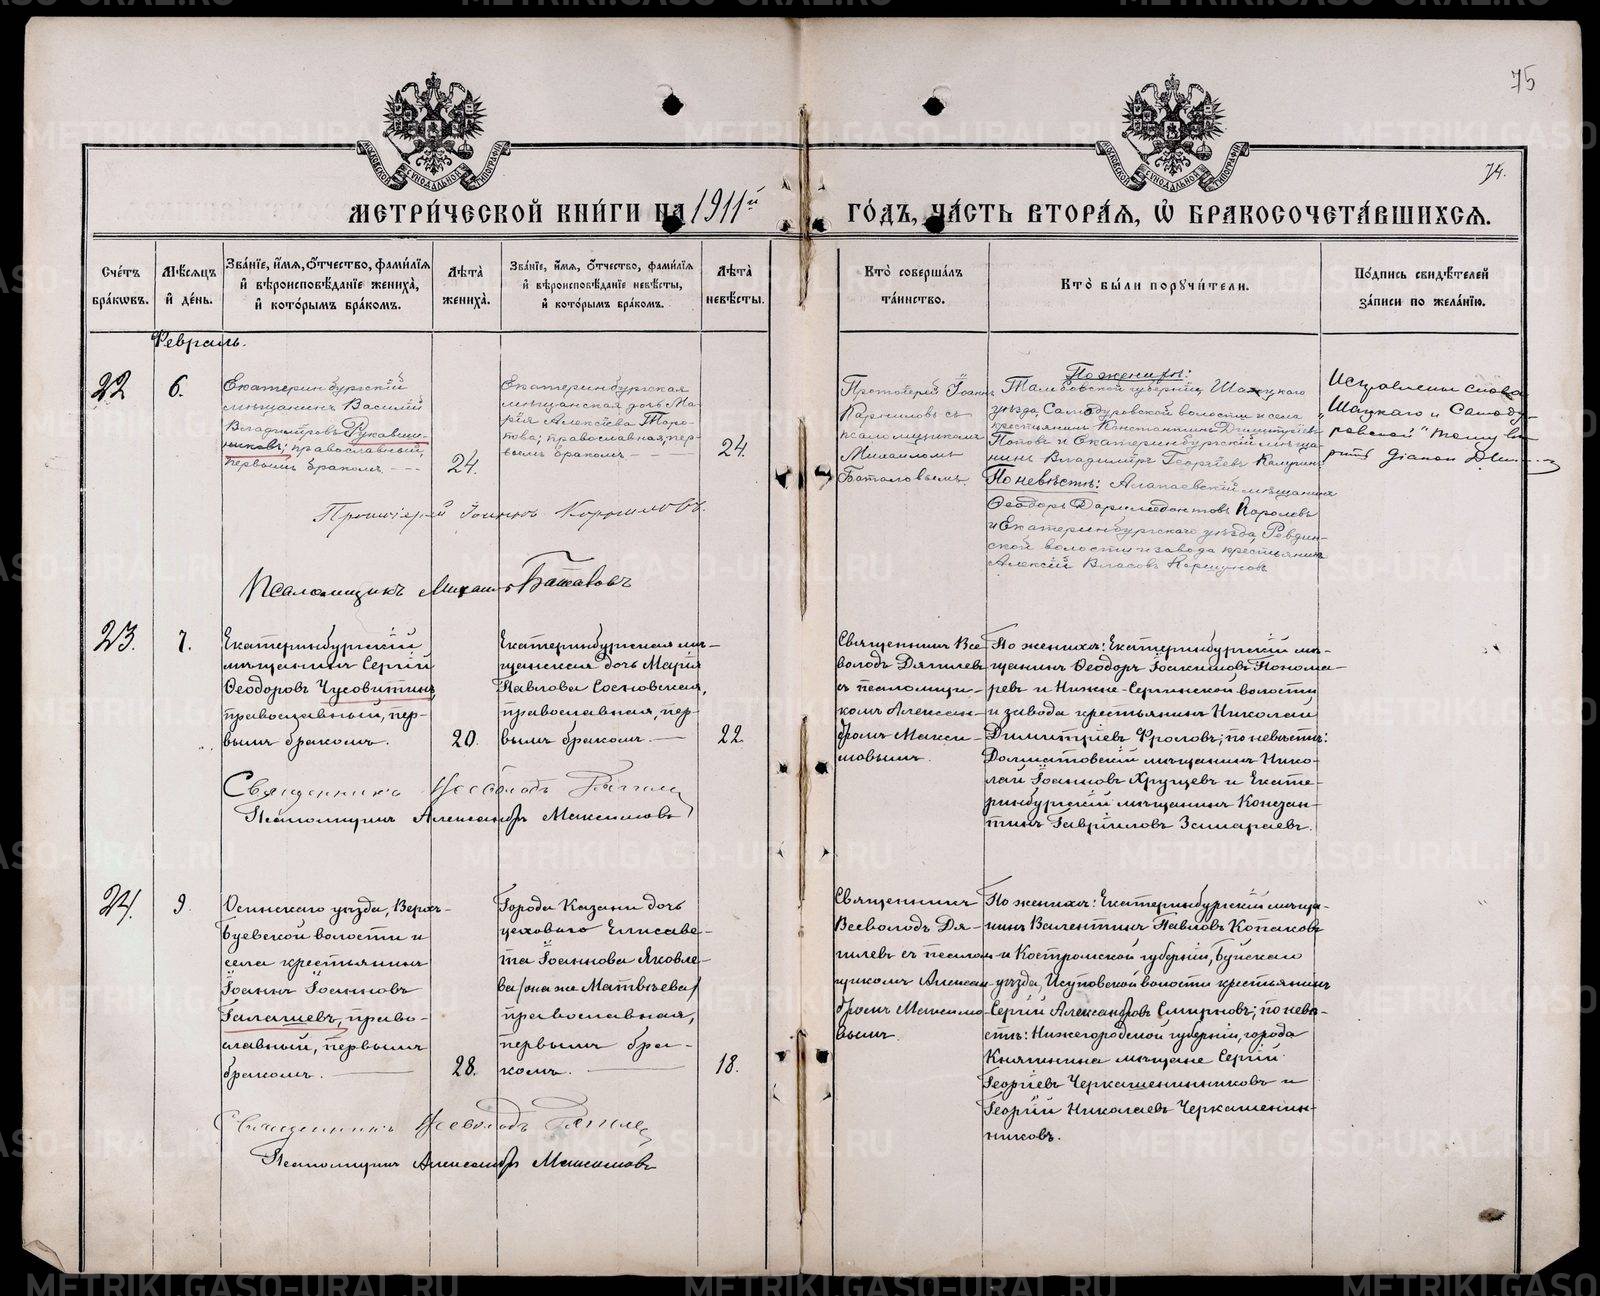 75
74.
МЕТРИ́ЧЕСКОЙ КНИ́ГИ НА 1911й
ГО́ДЪ, ЧА́СТЬ ВТОРА́Я, Ѡ БРАКОСОЧЕТА́ВШИХСЯ.
Сче́тъ бра́кωвъ.
Мѣ́сяцъ и҆ де́нь.
Зва́нїе, и҆́мя, ѻ҆́тчество, фами́лїя
и҆ вѣроисповѣ́данїе жениха̀,
и҆ кото́рымъ бра́комъ.
Лѣта̀ жениха̀.
Зва́нїе, и҆́мя, ѻ҆́тчество, фами́лїя
и҆ вѣроисповѣ́данїе невѣ́сты,
и҆ кото́рымъ бра́комъ.
Лѣта̀ невѣ́сты.
Кто̀ соверша́лъ
та́инство.
Кто̀ бы́ли порꙋчи́тели.
По́дпись свидѣ́телей
за́писи по жела́нїю.
Февраль.
22
6.
Екатеринбургскій
мѣщанинъ Василій
Владиміровъ Рукавиш-
никовъ, православный,
первымъ бракомъ
24.
Екатеринбургская
мѣщанская дочь Ма-
рія Алексіева
православная, пер-
вымъ бракомъ
24.
Протоіерей Іоаннъ
Корниловъ съ
псаломщикомъ
Михаиломъ
Баталовымъ.
По женихѣ:
Тамбовской губерніи, Шацкаго
уѣзда, Самодуровской волости и села
крестьянинъ Константинъ Димитріевъ
Поповъ и Екатеринбургскій мѣща-
нинъ Владиміръ Георгіевъ
По невѣстѣ: Алапаевскій мѣщанинъ
Ѳеодоръ Королевъ
и Екатеринбургскаго уѣзда, Ревдин-
ской волости и завода крестьянинъ
Алексій Власовъ Коршуновъ
Исправлены слова
„Шацкаго и Самоду-
ровской" тому вѣ-
ритъ діаконъ
Протоіерей Іоаннъ Корниловъ.
Псаломщикъ Михаилъ Баталовъ
23.
7.
Екатеринбургскій
мѣщанинъ Сергій
Ѳеодоровъ Чусовитинъ
православный, пер-
вымъ бракомъ.
20.
Екатеринбургская мѣ-
щанская дочь Марія
Павлова Сосновская,
православная, пер-
вымъ бракомъ
22.
Священникъ Все-
володъ Дягилевъ
съ псаломщи-
комъ Алексан-
дромъ Макси-
мовымъ.
По женихѣ: Екатеринбургскій мѣ-
щанинъ Ѳеодоръ Іоакимовъ Понома-
ревъ и Нижне-Сергинской волости
и завода крестьянинъ Николай
Димитріевъ Фроловъ; по невѣстѣ:
Долматовскій мѣщанинъ Нико-
лай Іоанновъ Хрущевъ и Екате-
ринбургскій мѣщанинъ Констан-
тинъ Гавріиловъ Замараевъ.
Священникъ Всеволодъ Дягилевъ
Псаломщикъ Александръ Максимовъ
24.
9.
Осинскаго уѣзда, Верхъ-
Буевской волости и
села крестьянинъ
Іоаннъ Іоанновъ
Галашевъ, право-
славный, первымъ
бракомъ.
28.
Города Казани дочь
цеховаго Елисаве-
та Іоаннова Яковле-
ва /она же Матвѣева/
православная,
первымъ бра-
комъ.
18.
Священникъ
Всеволодъ Дя-
гилевъ съ псалом-
щикомъ Алексан-
дромъ Максимо-
вымъ.
По женихѣ: Екатеринбургскій мѣща-
нинъ Валентинъ Павловъ Копаковъ
и Костромской губерніи, Буйскаго
уѣзда, Исуповской волости крестьянинъ
Сергій Александровъ Смирновъ; по невѣ-
стѣ: Нижегородской губерніи, города
Княгинина мѣщане Сергій
Георгіевъ Черкашенинниковъ и
Георгій Николаевъ Черкашенин-
никовъ.
Священникъ Всеволодъ Дягилевъ
Псаломщикъ Александръ Максимовъ
METRIKI.GASO-URAL.RU